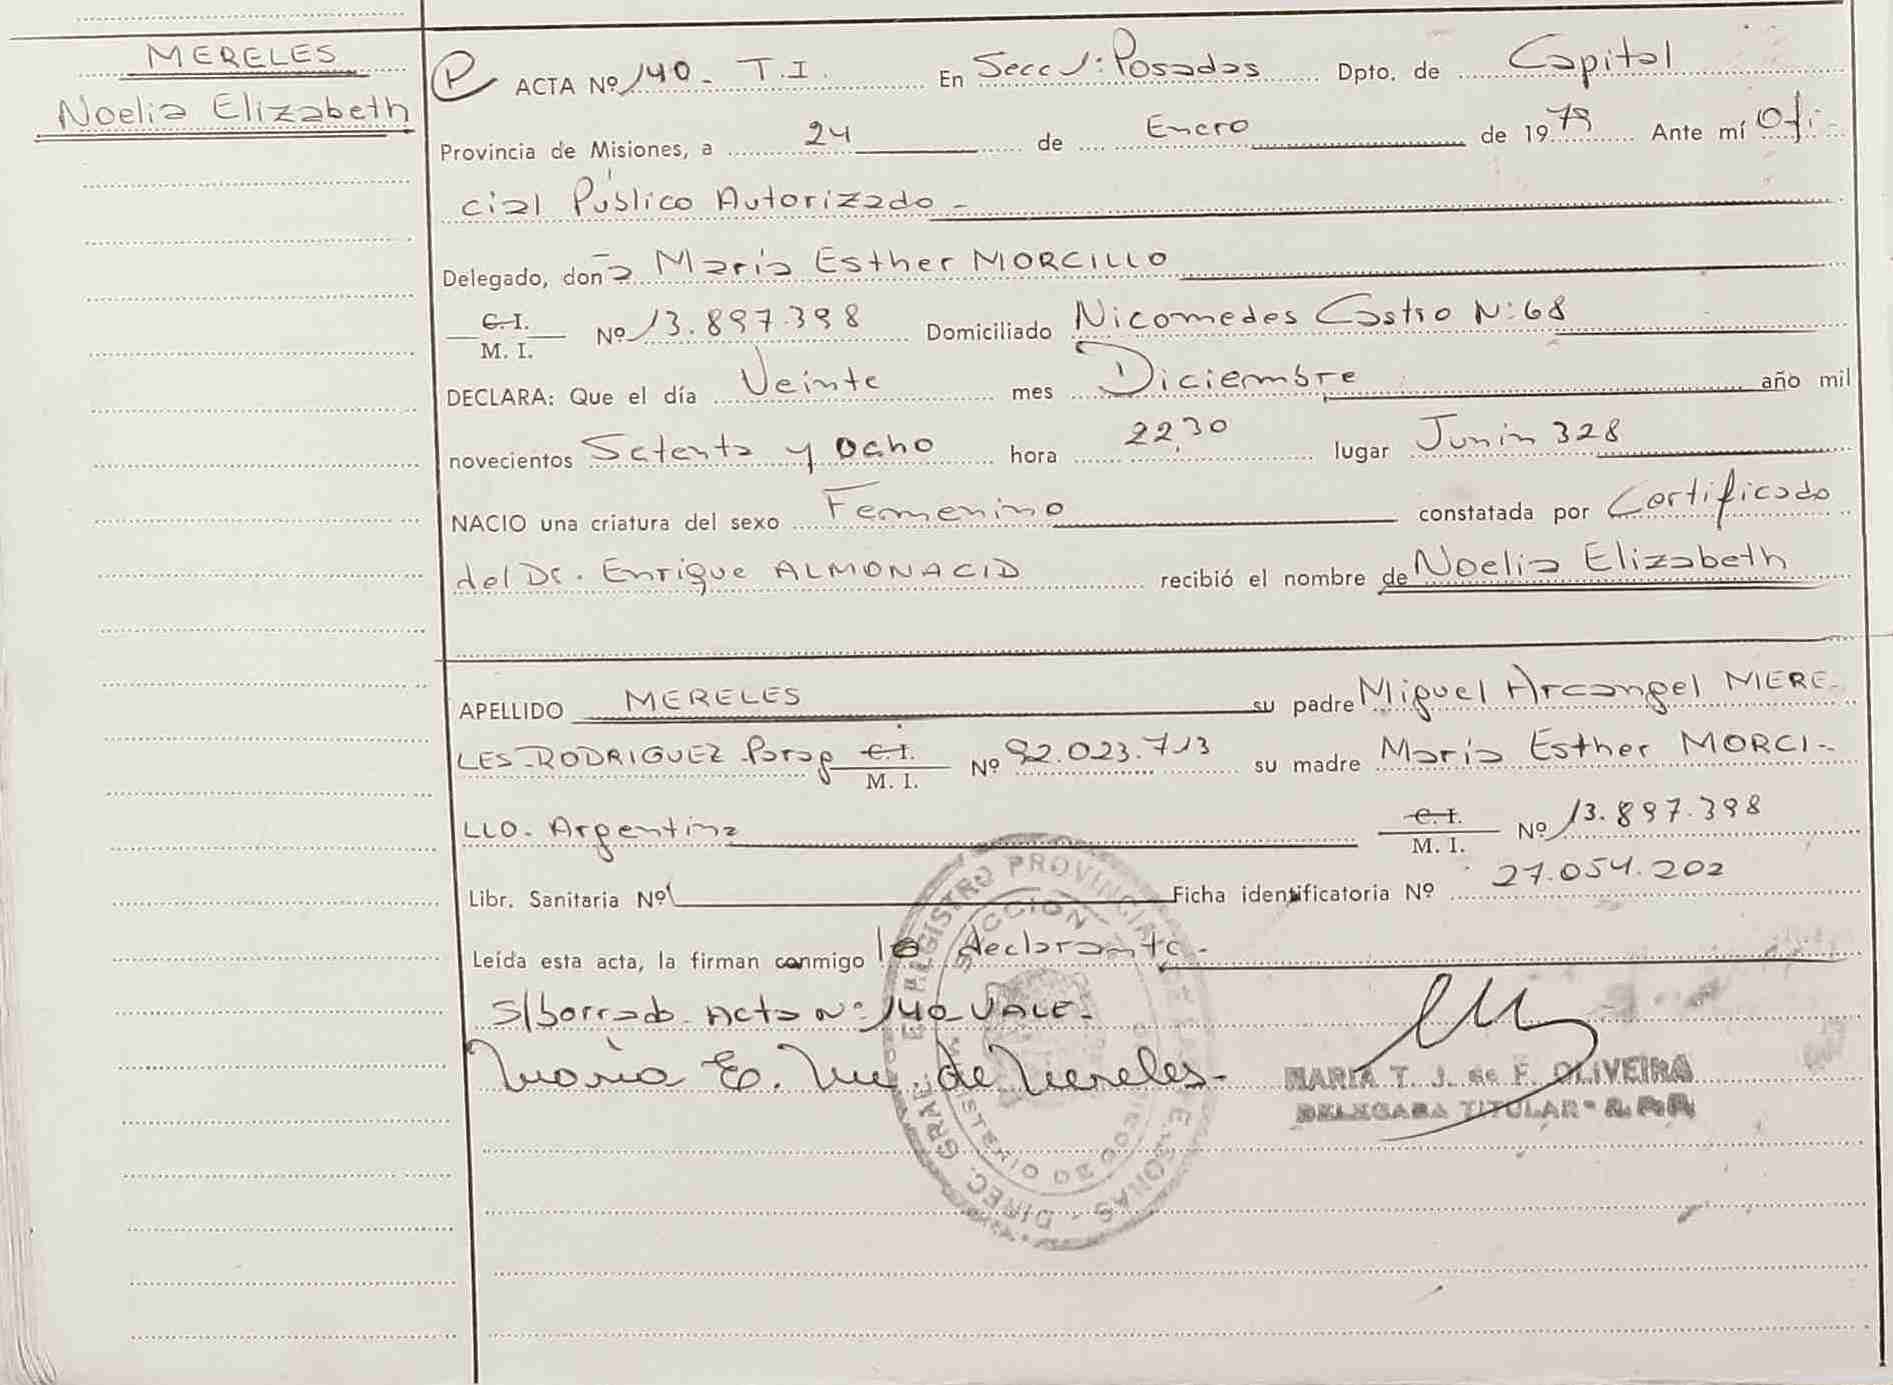 MERELES
Noelia Elizabeth
P ACTA Nº 140 - T.I. En Secc 1: Posadas Dpto. de Capital
Provincia de Misiones, a 24 de Enero de 1979 Ante mí Ofi-
cial Público Autorizado -
Delegado, doña María Esther MORCILLO
C. I. / M. I. Nº 13.897.398 Domiciliado Nicomedes Castro Nº 68
DECLARA: Que el día Veinte mes Diciembre año mil
novecientos Setenta y Ocho hora 22,30 lugar Junin 328
NACIO una criatura del sexo Femenino constatada por Certificado
del Dr. Enrique ALMONACID recibió el nombre de Noelia Elizabeth
APELLIDO MERELES su padre Miguel Arcangel MERE-
LES-RODRIGUEZ Parag C. I. / M. I. Nº 92.023.713 su madre María Esther MORCI-
LLO. Argentina C. I. / M. I. Nº 13.897.398
Libr. Sanitaria Nº Ficha identificatoria Nº 27.054.202
Leída esta acta, la firman conmigo la declarante-
S/borrado Acta Nº 140 VALE-
María E. M. de Mereles-
MARIA T. J. de F. OLIVEIRA
DELEGADA TITULAR
REGISTRO PROVINCIAL DE LAS PERSONAS - DIREC. GRAL.
SECCION
MINISTERIO DE GOBIERNO